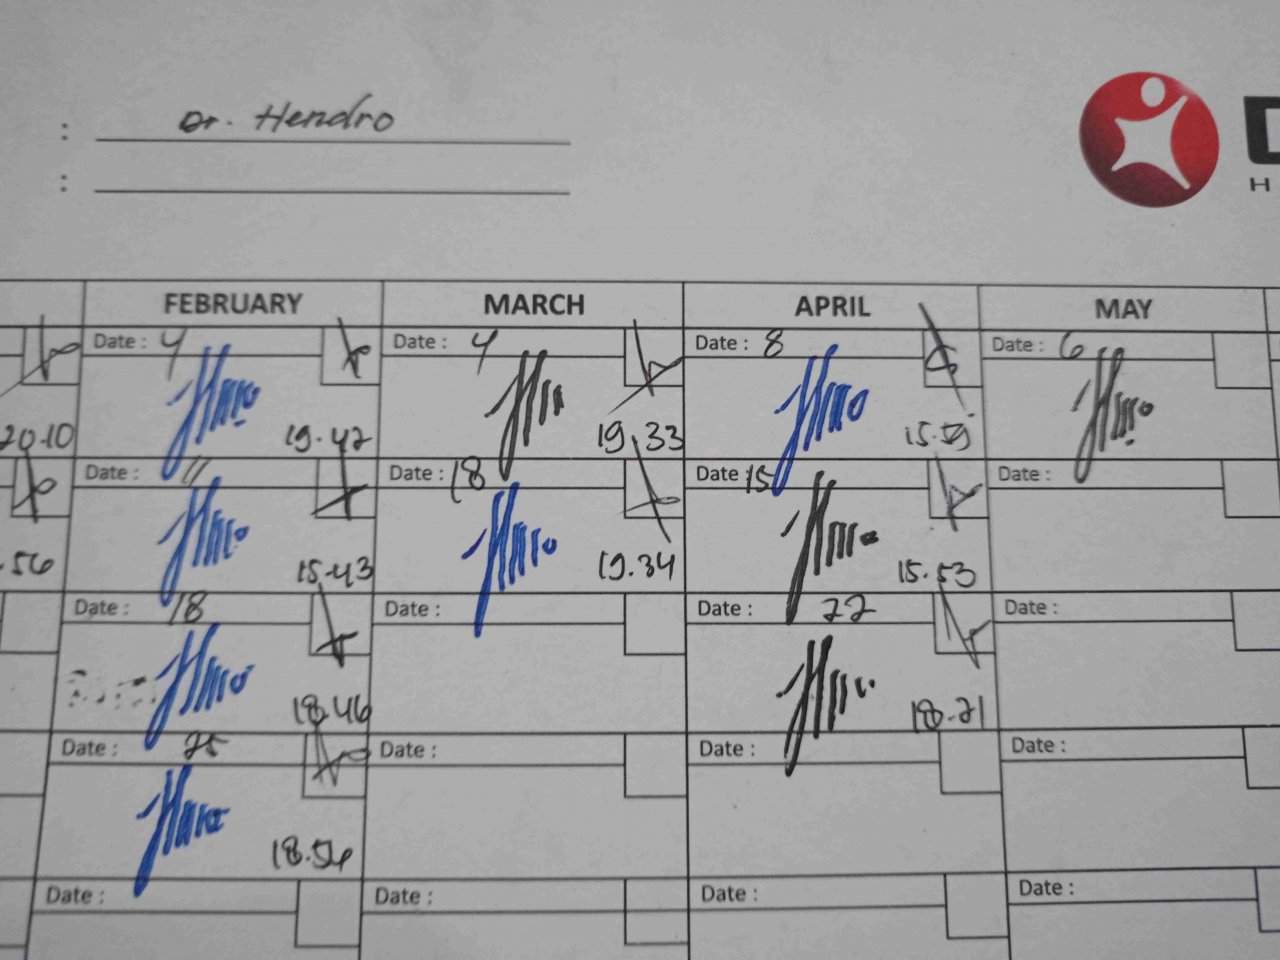 : Dr. Hendro
:
D
H
FEBRUARY MARCH APRIL MAY
Date : 4 Date : 4 Date : 8 Date : 6
20.10 19.47 19.33 15.59
Date : 11 Date : 18 Date : 15 Date :
.56 15.43 19.34 15.53
Date : 18 Date : Date : 22 Date :
18.46 18.21
Date : 25 Date : Date : Date :
18.54
Date : Date : Date : Date :